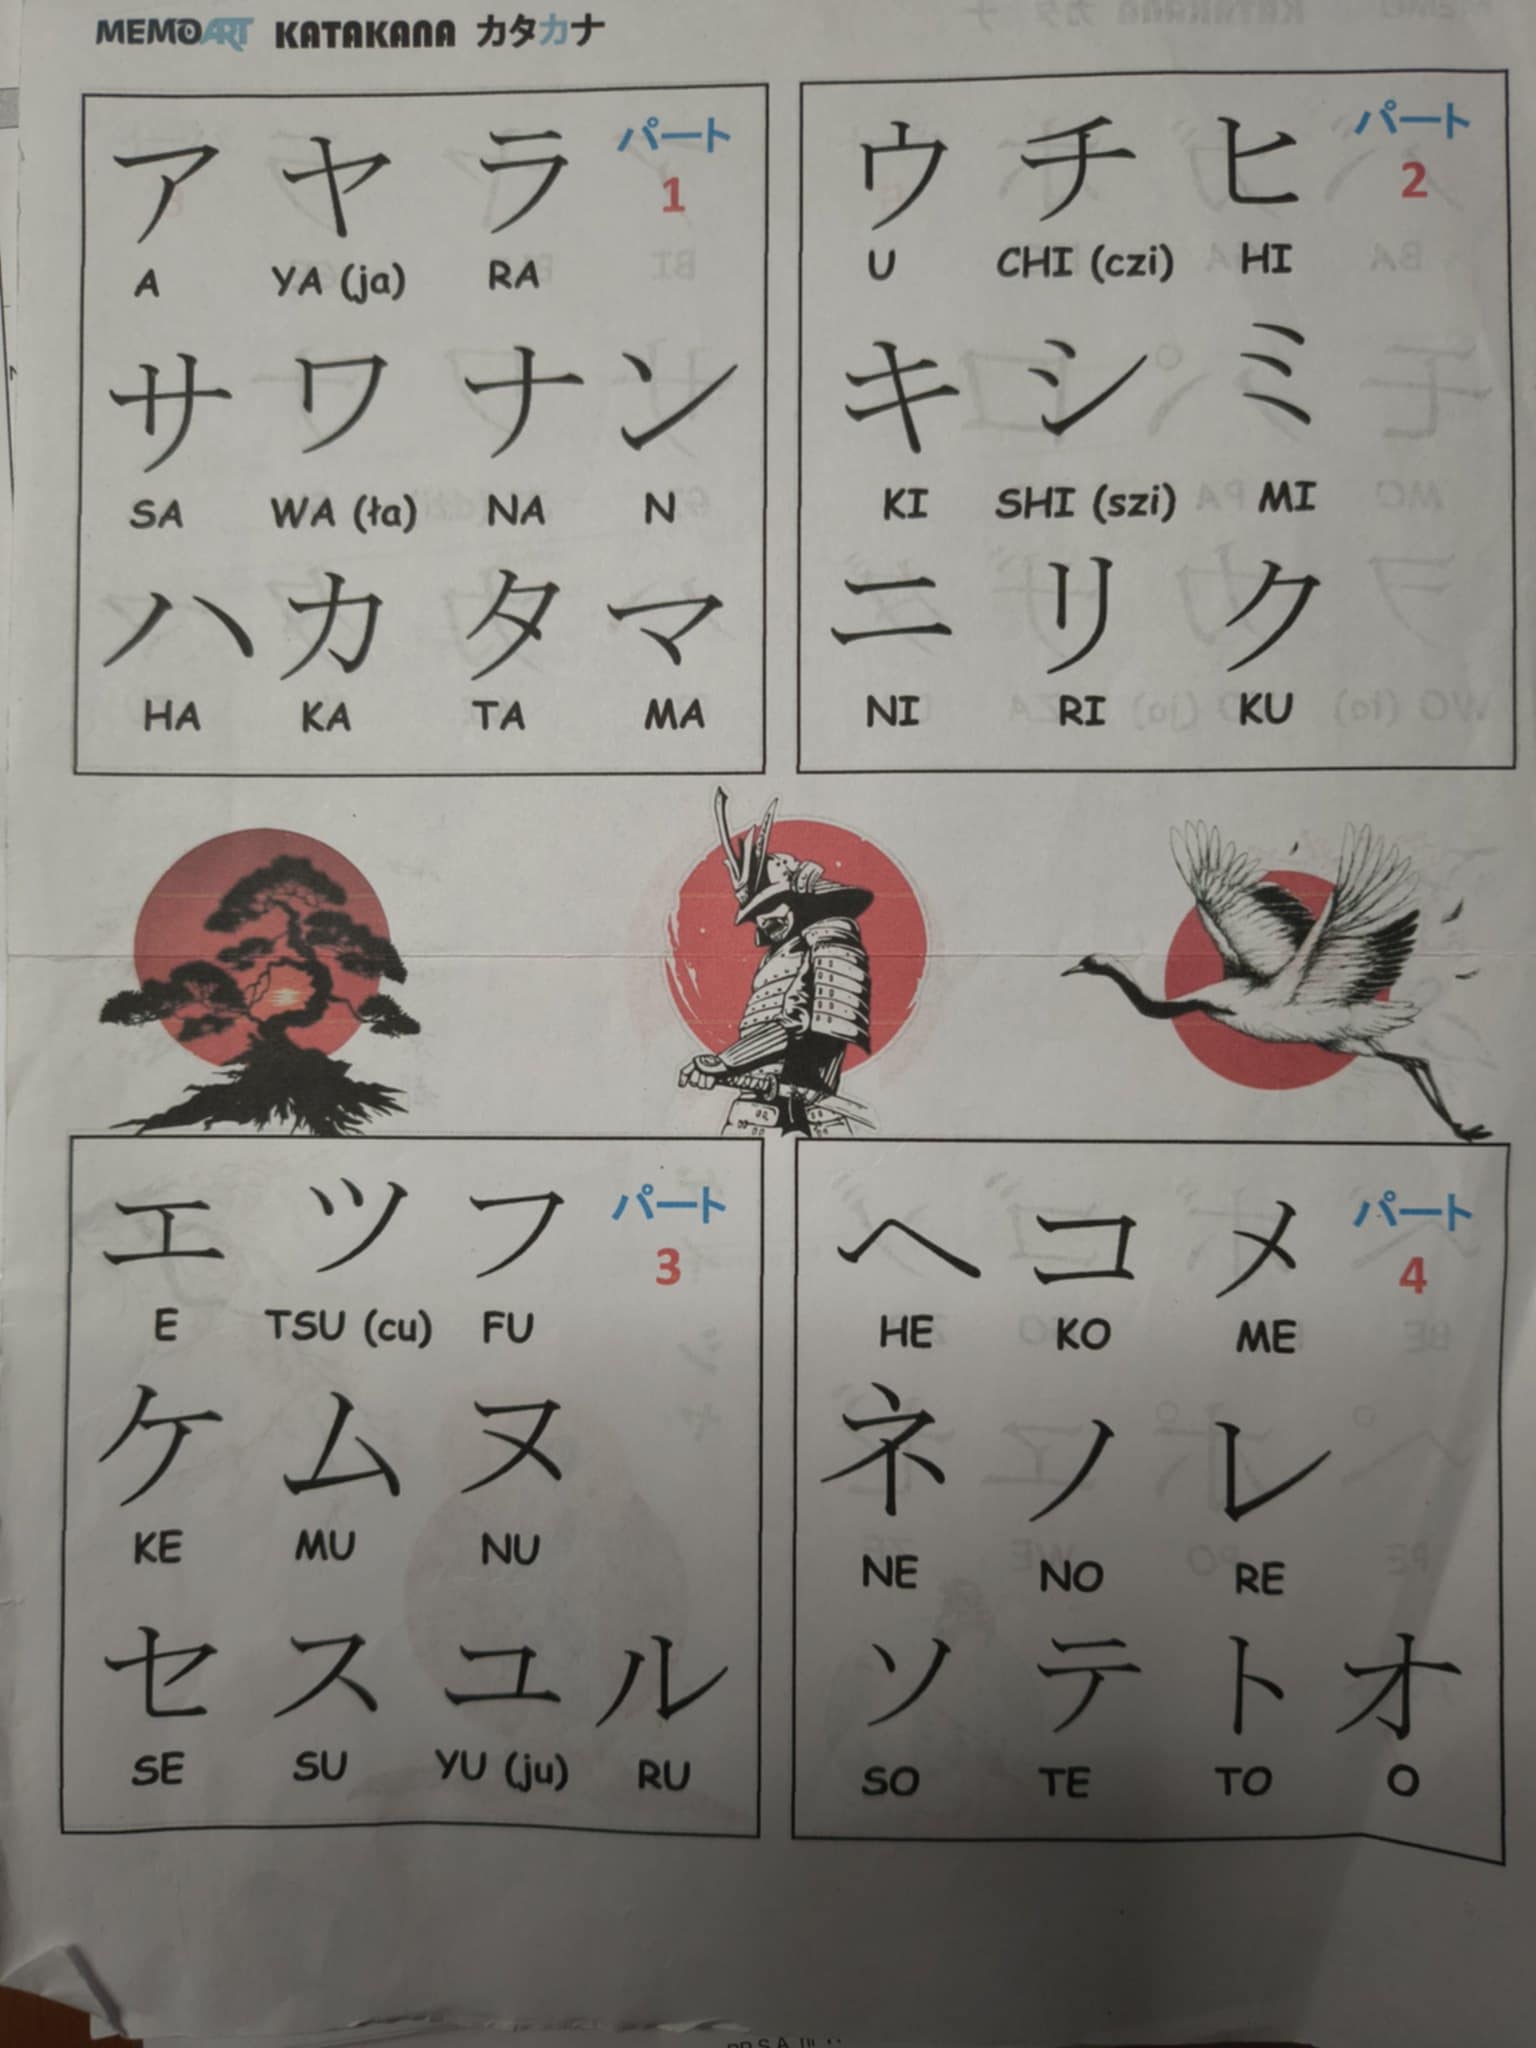 MEMOART KATAKANA カタカナ
パート
1
ア ヤ ラ
A YA (ja) RA
サ ワ ナ ン
SA WA (ła) NA N
ハ カ タ マ
HA KA TA MA
パート
2
ウ チ ヒ
U CHI (czi) HI
キ シ ミ
KI SHI (szi) MI
ニ リ ク
NI RI KU
パート
3
エ ツ フ
E TSU (cu) FU
ケ ム ヌ
KE MU NU
セ ス ユ ル
SE SU YU (ju) RU
パート
4
ヘ コ メ
HE KO ME
ネ ノ レ
NE NO RE
ソ テ ト オ
SO TE TO O